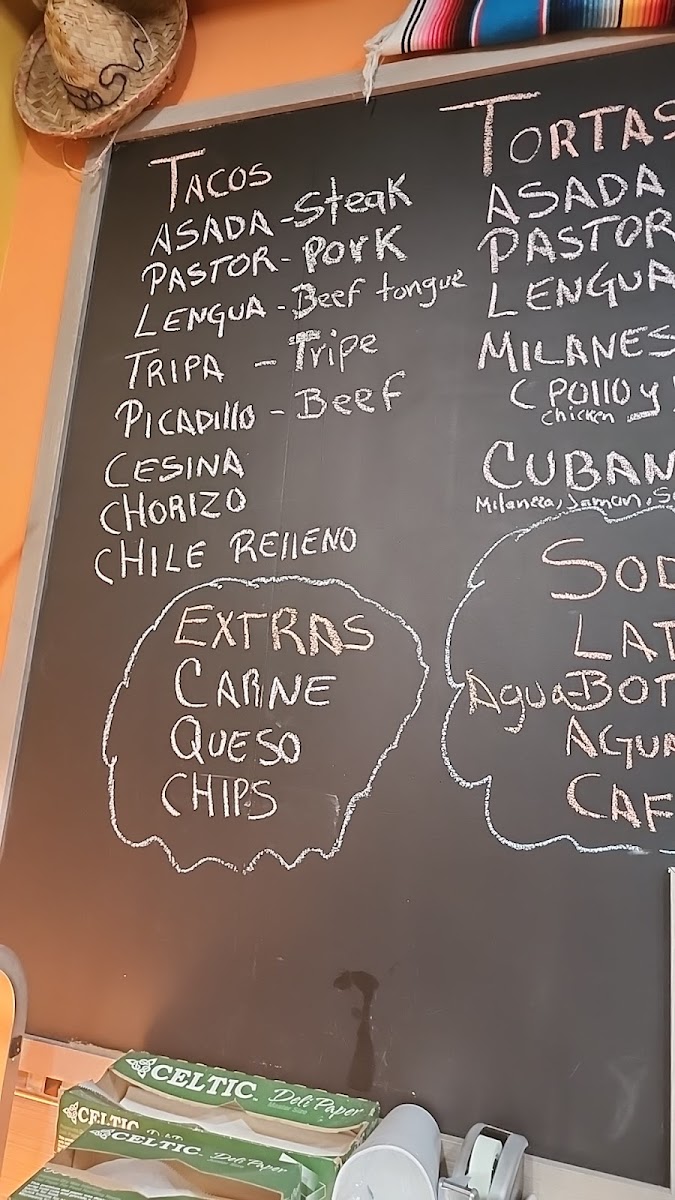 TACOS
ASADA - Steak
PASTOR - PORK
LENGUA - Beef tongue
TRIPA - Tripe
PICADIllo - BEEF
CESINA
CHORIZO
CHILE REllENO
EXTRAS
CARNE
QUESO
CHIPS
TORTAS
ASADA
PASTOR
LENGUA
MILANES
( POllO y
chicken
CUBAN
Milaneza, Jamon, S
SOD
LAT
Agua-BOT
AGUA
CAF
CELTIC Deli Paper
CELTIC
CELTIC Deli Paper